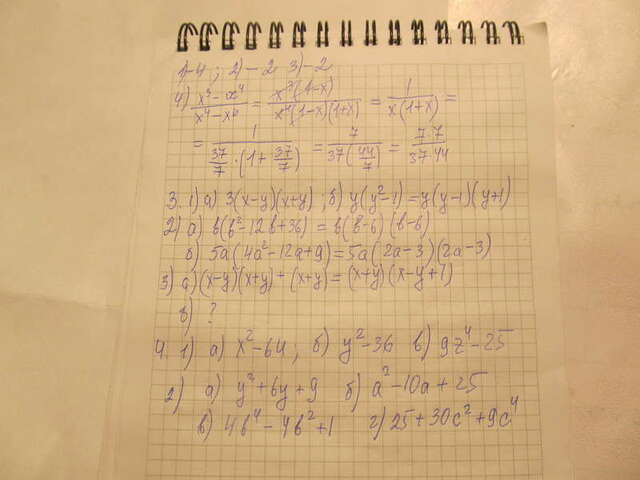 1)-4; 2)-2 3)-2
4) (x³-x⁴)/(x⁴-x⁶) = x³(1-x)/(x⁴(1-x)(1+x)) = 1/(x(1+x)) =
= 1/(37/7·(1+37/7)) = 7/(37(44/7)) = 7·7/(37·44)
3. 1) а) 3(x-y)(x+y); б) y(y²-1)=y(y-1)(y+1)
2) а) в(в²-12в+36)=в(в-6)(в-6)
б) 5a(4a²-12a+9)=5a(2a-3)(2a-3)
3) а) (x-y)(x+y)+(x+y)=(x+y)(x-y+1)
в) ?
4. 1) а) x²-64; б) y²-36 в) 9z⁴-25
2) а) y²+6y+9 б) a²-10a+25
в) 4в⁴-4в²+1 г) 25+30c²+9c⁴